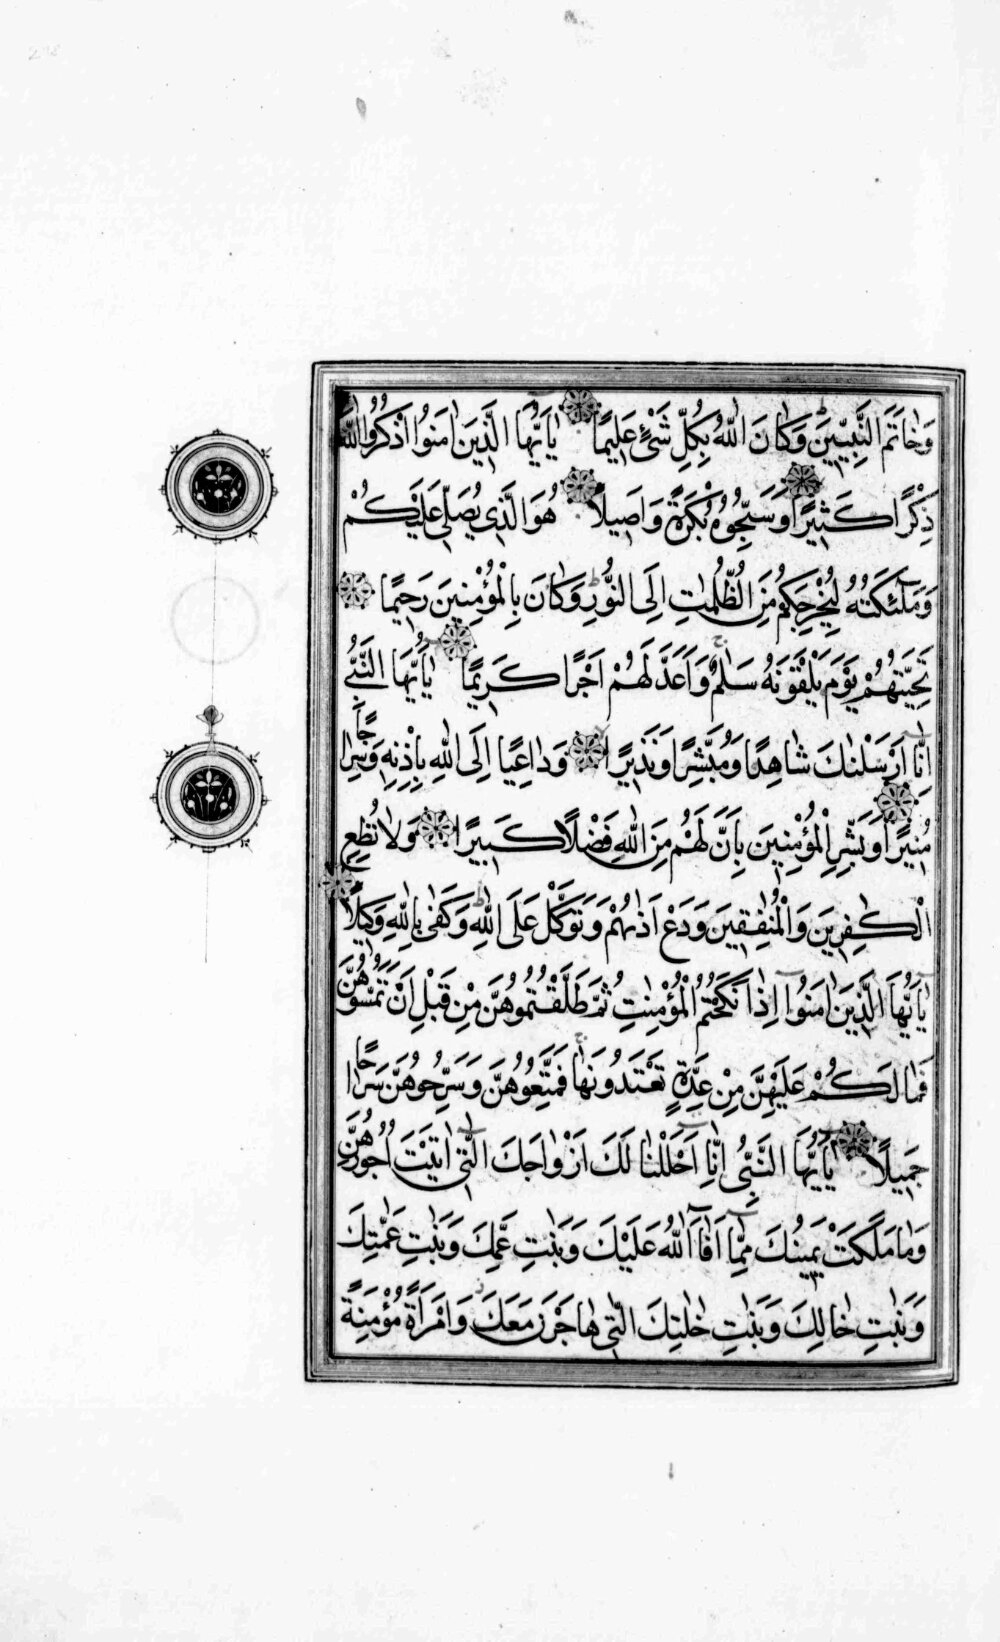 وَخَاتَمَ النَّبِيِّينَ وَكَانَ اللّٰهُ بِكُلِّ شَيْءٍ عَلِيمًا يٰاَيُّهَا الَّذِينَ اٰمَنُوا اذْكُرُوا اللّٰهَ
ذِكْرًا كَثِيرًا وَسَبِّحُوهُ بُكْرَةً وَاَصِيلًا هُوَ الَّذِي يُصَلِّي عَلَيْكُمْ
وَمَلٰٓئِكَتُهُ لِيُخْرِجَكُمْ مِنَ الظُّلُمٰتِ اِلَى النُّورِ وَكَانَ بِالْمُؤْمِنِينَ رَحِيمًا
تَحِيَّتُهُمْ يَوْمَ يَلْقَوْنَهُ سَلٰمٌ وَاَعَدَّ لَهُمْ اَجْرًا كَرِيمًا يٰاَيُّهَا النَّبِيُّ
اِنَّا اَرْسَلْنٰكَ شَاهِدًا وَمُبَشِّرًا وَنَذِيرًا وَدَاعِيًا اِلَى اللّٰهِ بِاِذْنِهِ وَسِرَاجًا
مُنِيرًا وَبَشِّرِ الْمُؤْمِنِينَ بِاَنَّ لَهُمْ مِنَ اللّٰهِ فَضْلًا كَبِيرًا وَلَا تُطِعِ
الْكٰفِرِينَ وَالْمُنٰفِقِينَ وَدَعْ اَذٰىهُمْ وَتَوَكَّلْ عَلَى اللّٰهِ وَكَفٰى بِاللّٰهِ وَكِيلًا
يٰاَيُّهَا الَّذِينَ اٰمَنُوا اِذَا نَكَحْتُمُ الْمُؤْمِنٰتِ ثُمَّ طَلَّقْتُمُوهُنَّ مِنْ قَبْلِ اَنْ تَمَسُّوهُنَّ
فَمَا لَكُمْ عَلَيْهِنَّ مِنْ عِدَّةٍ تَعْتَدُّونَهَا فَمَتِّعُوهُنَّ وَسَرِّحُوهُنَّ سَرَاحًا
جَمِيلًا يٰاَيُّهَا النَّبِيُّ اِنَّا اَحْلَلْنَا لَكَ اَزْوَاجَكَ الّٰتِي اٰتَيْتَ اُجُورَهُنَّ
وَمَا مَلَكَتْ يَمِينُكَ مِمَّا اَفَاءَ اللّٰهُ عَلَيْكَ وَبَنٰتِ عَمِّكَ وَبَنٰتِ عَمّٰتِكَ
وَبَنٰتِ خَالِكَ وَبَنٰتِ خٰلٰتِكَ الّٰتِي هَاجَرْنَ مَعَكَ وَامْرَاَةً مُؤْمِنَةً